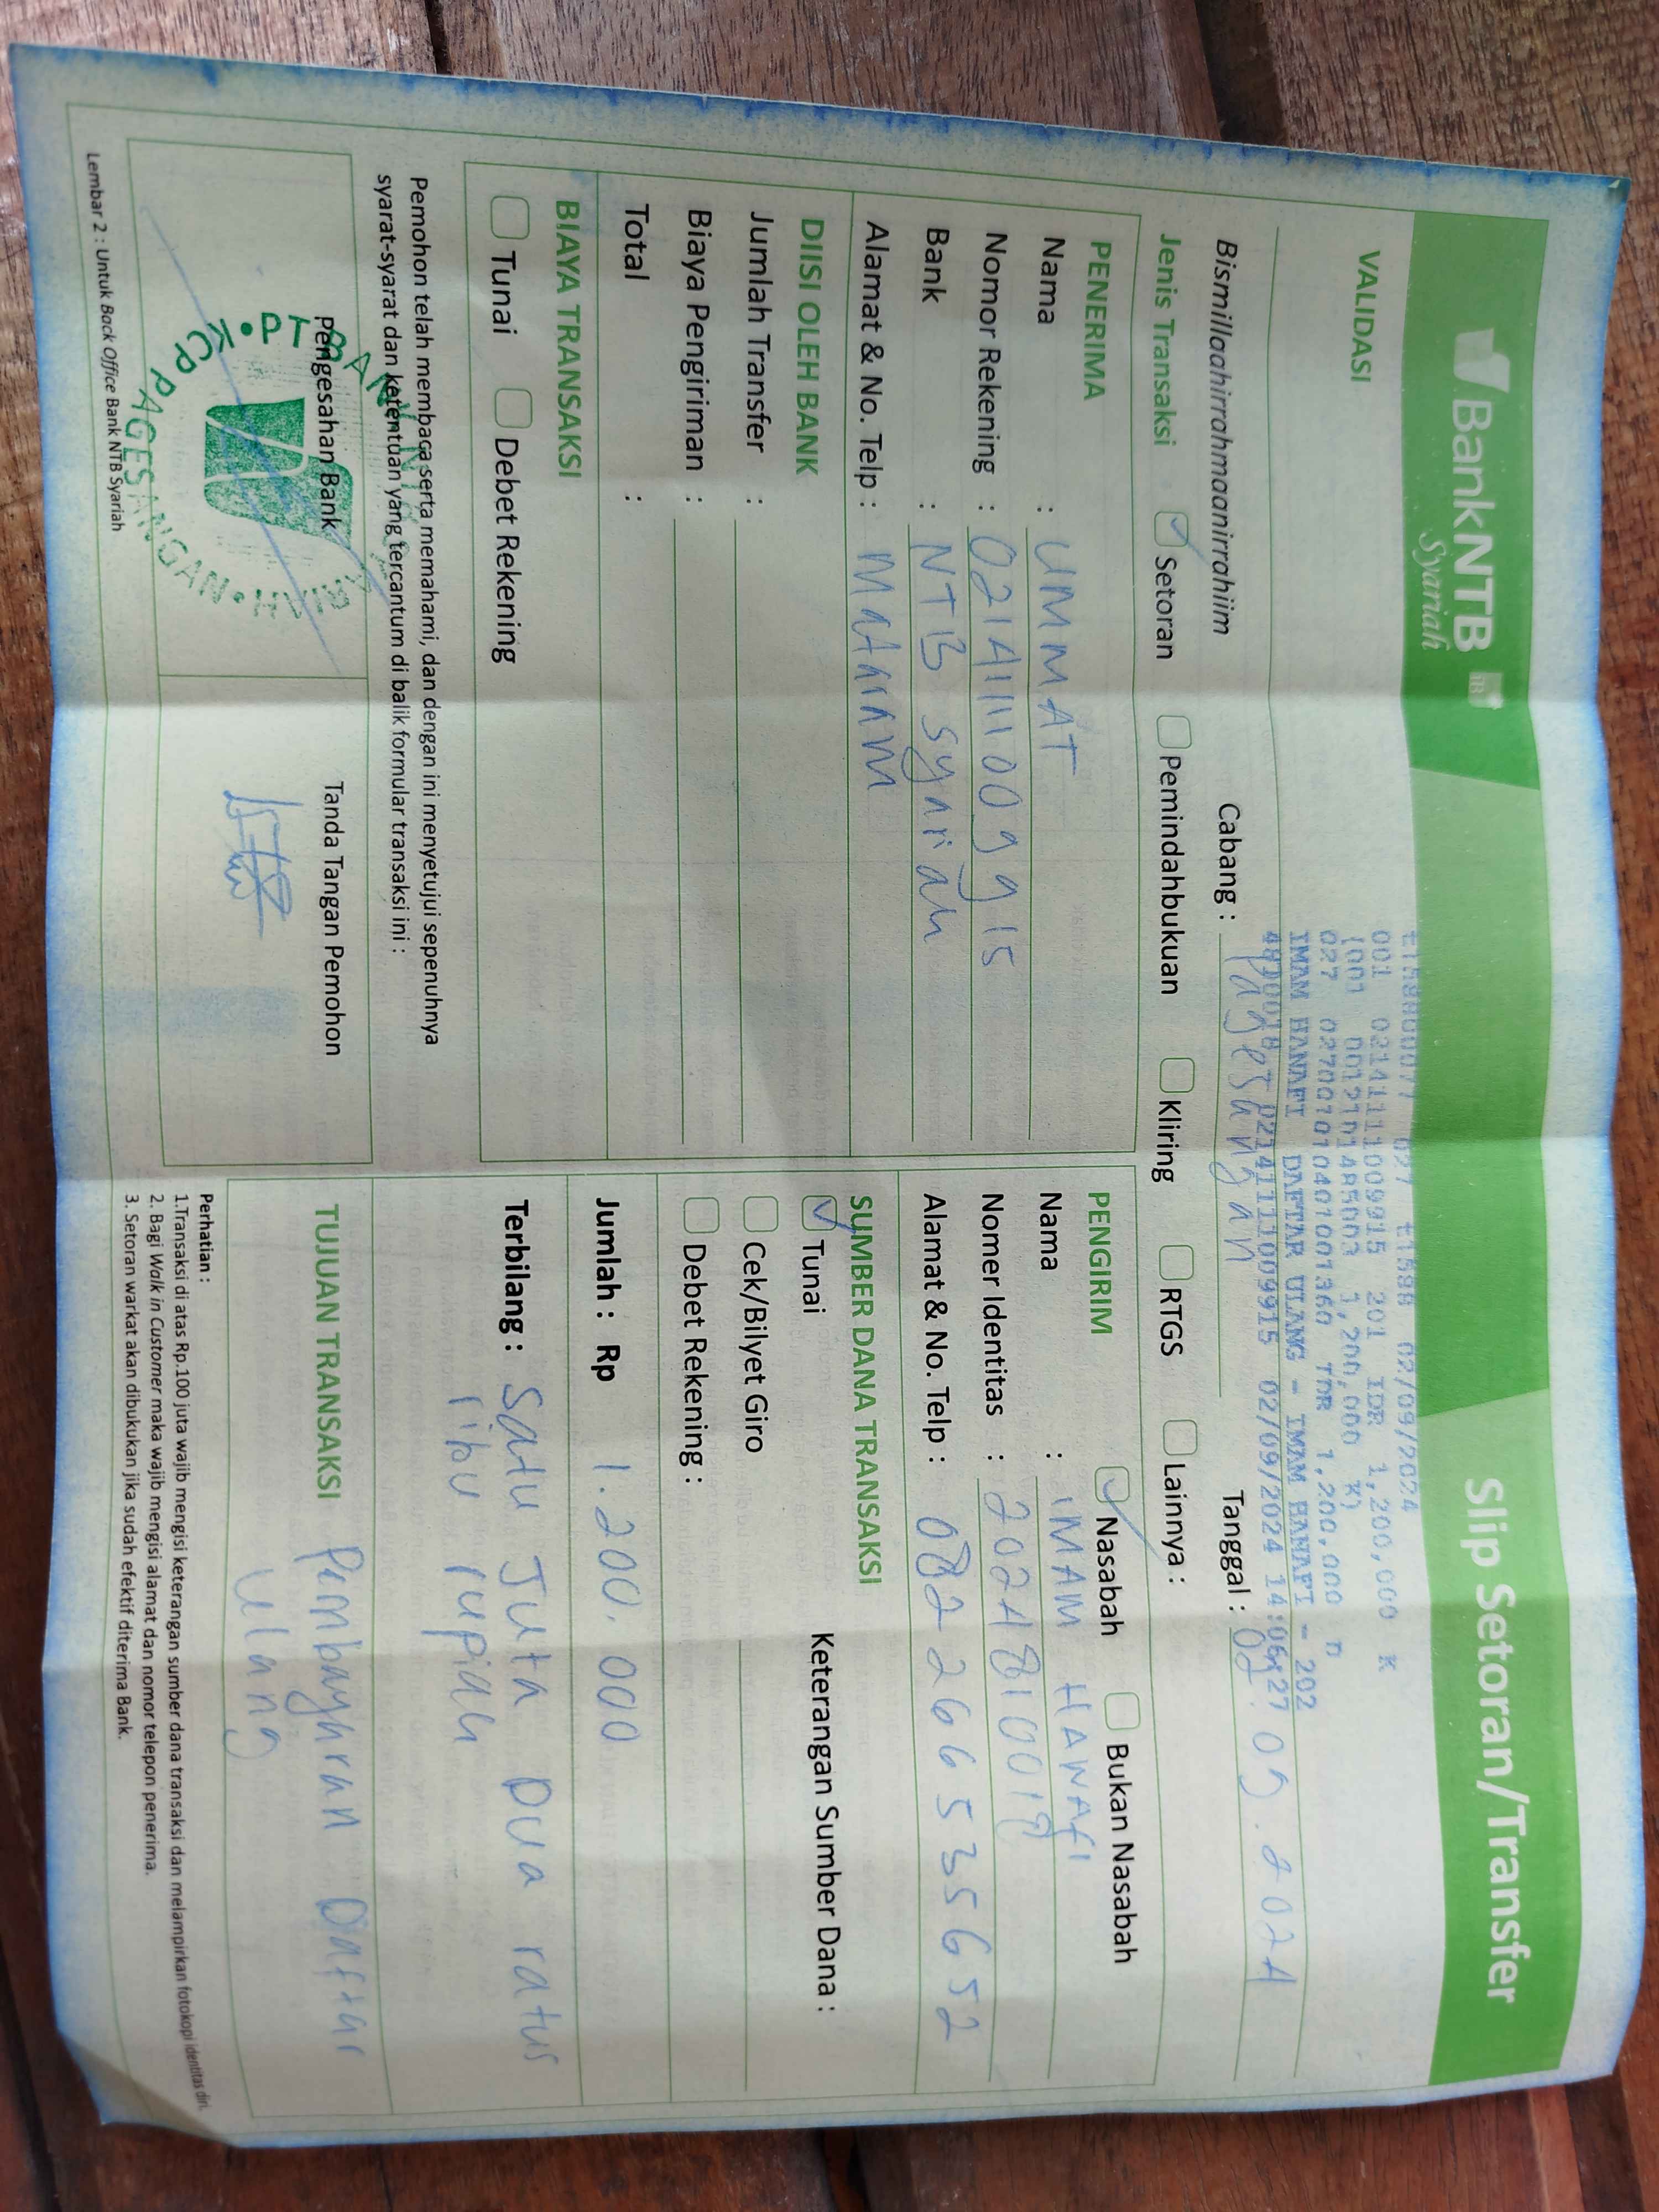 BankNTB
Syariah
Slip Setoran/Transfer
VALIDASI
t1598 02/09/2024
001 02141111009915 201 IDR 1,200,000 K
(001 0012101485003 1,200,000 K)
027 0270010104010013600 TDR 1,200,000 D
IMAM HANAFI DAFTAR ULANG - IMAM HANAFI - 202
02141111009915 02/09/2024 14:06:27
Bismillaahirrahmaanirrahiim
Cabang : Pagesangan
Tanggal : 02.09.2024
Jenis Transaksi
Setoran
Pemindahbukuan
Kliring
RTGS
Lainnya :
PENERIMA
Nama : UMMAT
Nomor Rekening : 02141111009915
Bank : NTB Syariah
Alamat & No. Telp : Mataram
PENGIRIM
Nasabah
Bukan Nasabah
Nama : IMAM HANAFI
Nomer Identitas : 2024810019
Alamat & No. Telp : 082266535652
DIISI OLEH BANK
Jumlah Transfer :
Biaya Pengiriman :
Total :
SUMBER DANA TRANSAKSI
Tunai
Keterangan Sumber Dana :
Cek/Bilyet Giro
Debet Rekening :
BIAYA TRANSAKSI
Tunai
Debet Rekening
Jumlah : Rp 1.200.000
Terbilang : Satu Juta Dua ratus
ribu rupiah
Pemohon telah membaca serta memahami, dan dengan ini menyetujui sepenuhnya
syarat-syarat dan ketentuan yang tercantum di balik formular transaksi ini :
TUJUAN TRANSAKSI Pembayaran Daftar
Ulang
Pengesahan Bank
Tanda Tangan Pemohon
PT BANK NTB
KCP PAGESANGAN
Perhatian :
1.Transaksi di atas Rp.100 juta wajib mengisi keterangan sumber dana transaksi dan melampirkan fotokopi identitas diri.
2. Bagi Walk in Customer maka wajib mengisi alamat dan nomor telepon penerima.
3. Setoran warkat akan dibukukan jika sudah efektif diterima Bank.
Lembar 2 : Untuk Back Office Bank NTB Syariah